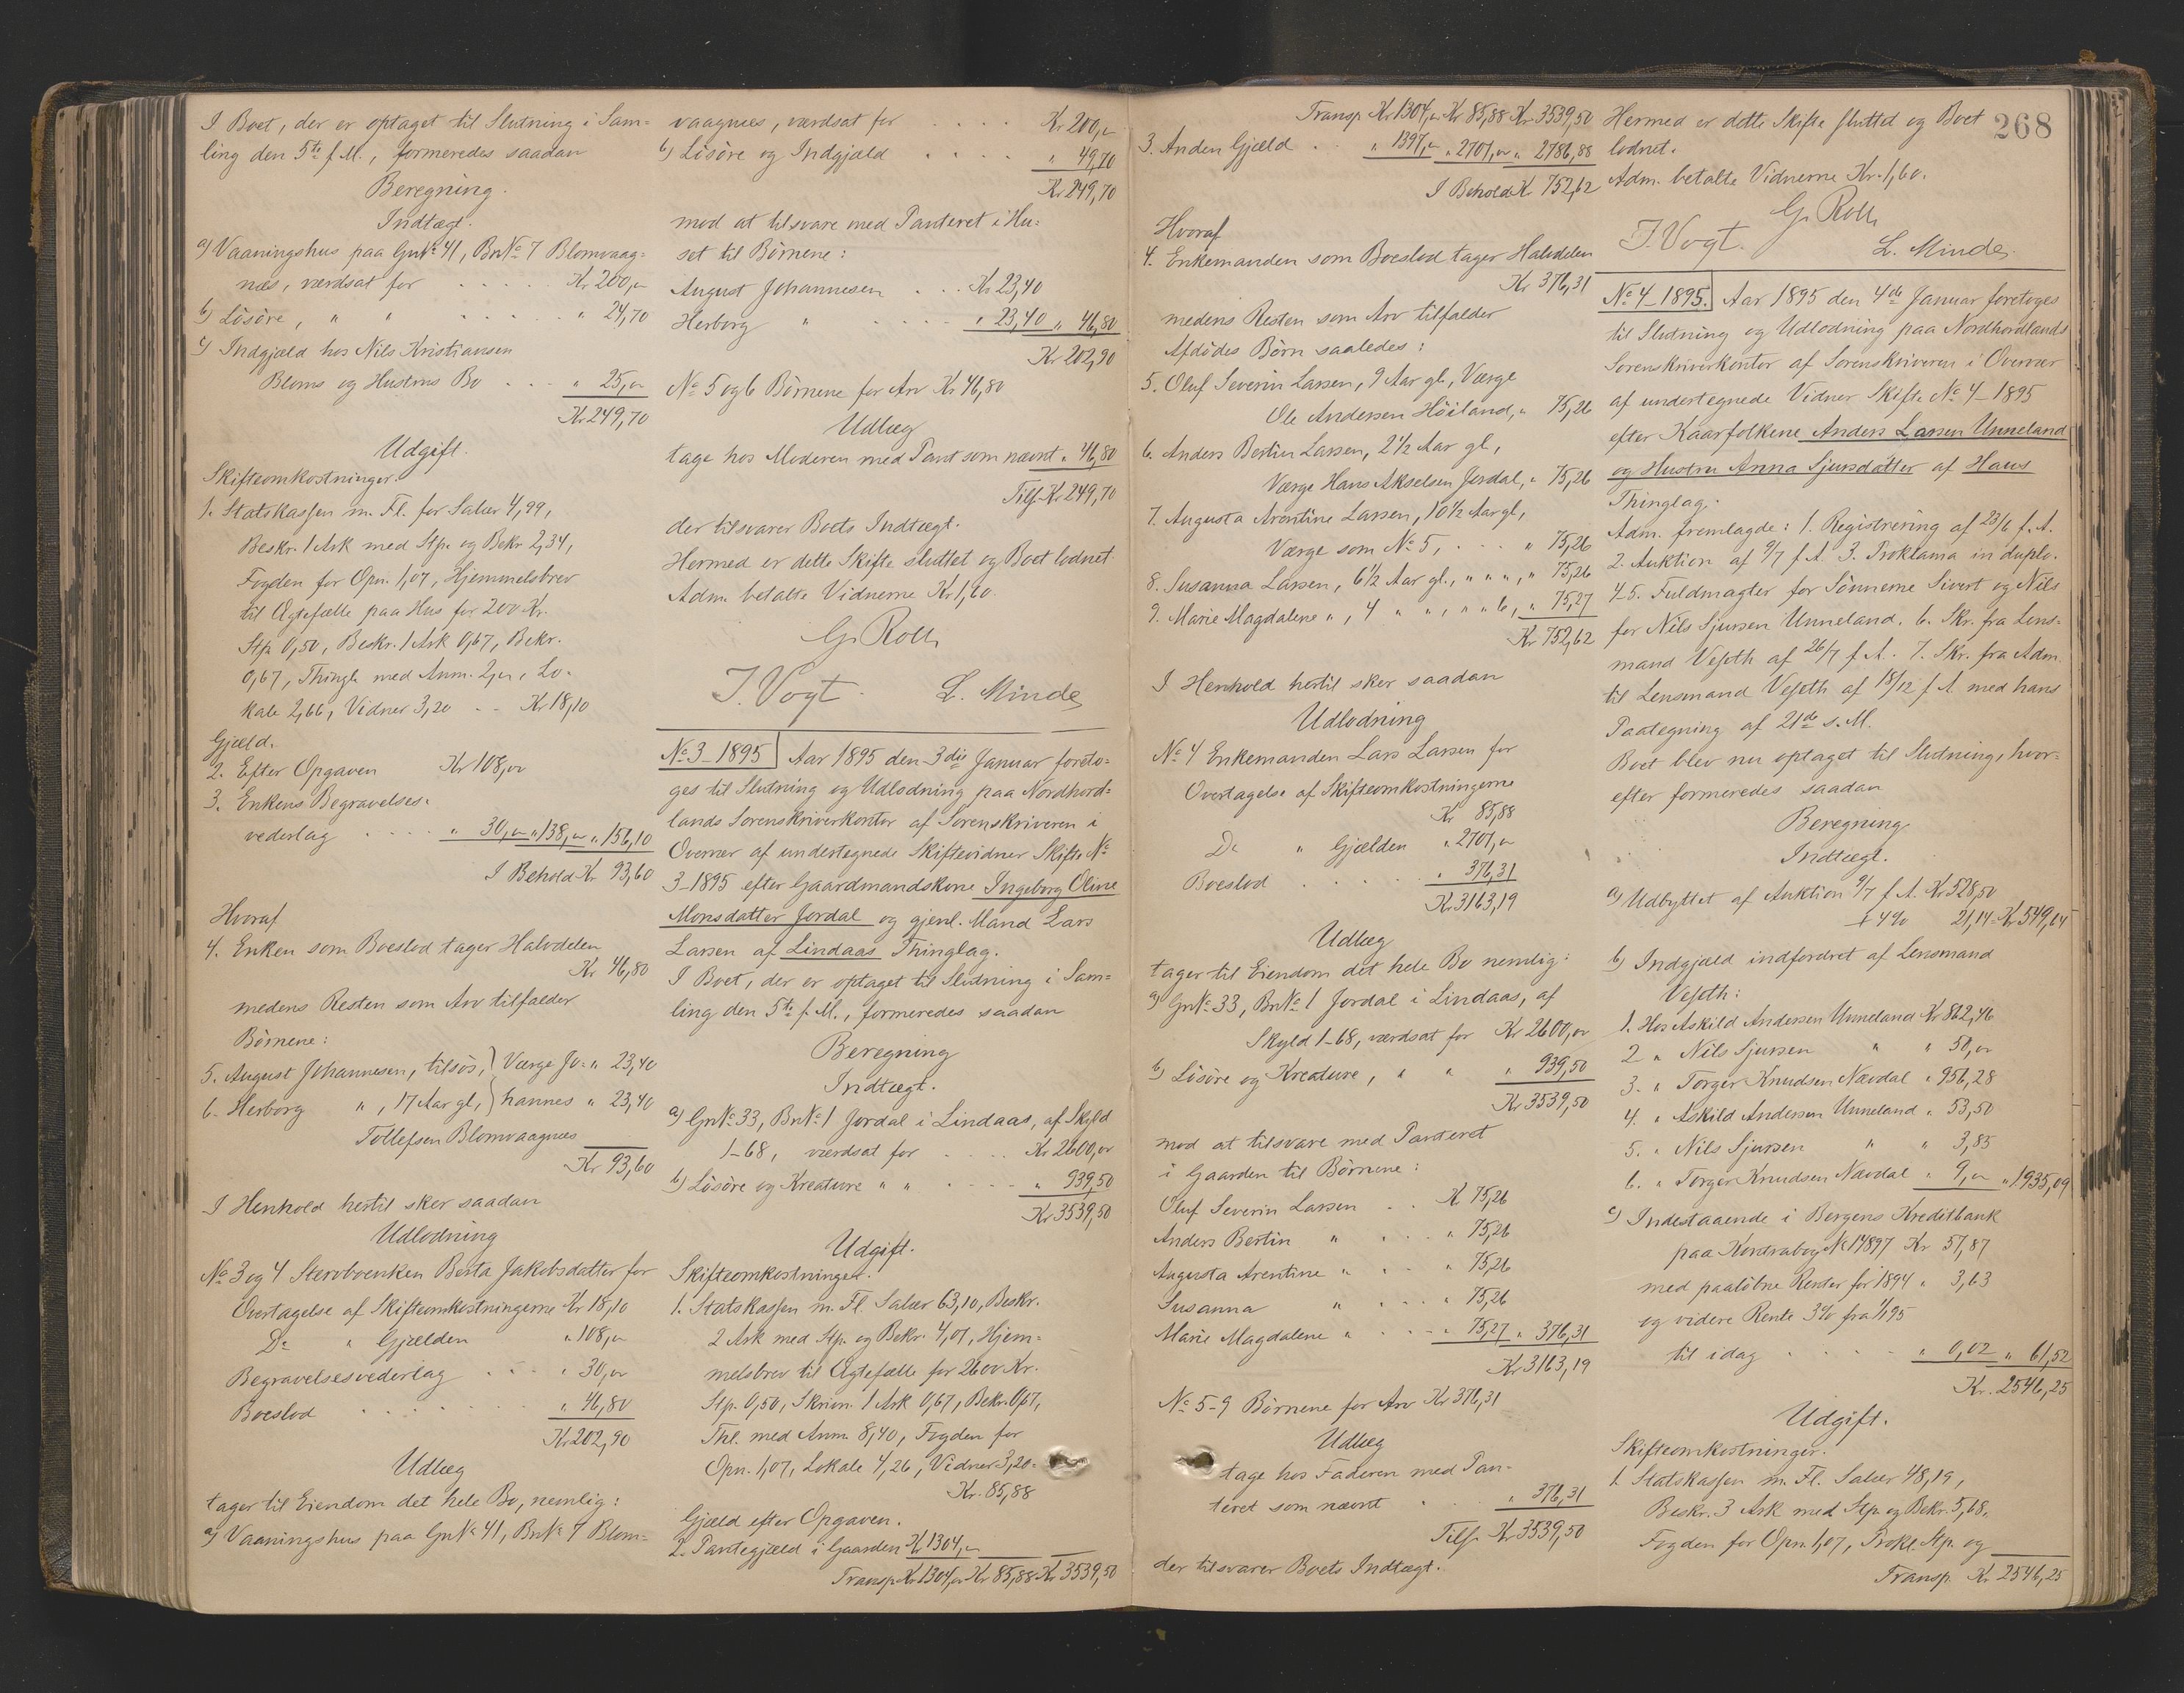 I Boet, der er optaget til Slutning i Sam=
ling den 5te f. M., formeredes saadan
Beregning.
Indtægt.
a) Vaaningshus paa GnNo 41, BnNo 7 Blomvaag=
næs, værdsat for . . . . . Kr 200,"
b) Lösöre, " " . . . . . " 24,70
c) Indgjæld hos Nils Kristiansen
Bloms og Hustrus Bo . . . " 25,"
Kr 249,70
Udgift.
Skifteomkostninger.
1. Statskassen m. Fl. for Salær 4,99,
Beskr. 1 Ark med Stp. og Bekr 2,34,
Fogden for Opn. 1,07, Hjemmelsbrev
til Ægtefælle paa Hus for 200 Kr.
Stp 0,50, Beskr. 1 Ark 0,67, Bekr.
0,67, Thingl. med Anm. 2,", Lo-
kale 2,66, Vidner 3,20 . . Kr 18,10
Gjæld.
2. Efter Opgaven Kr 108,"
3. Enkens Begravelses-
vederlag . . . . " 30," " 138," " 156,10
I Behold Kr 93,60
Hvoraf
4. Enken som Boeslod tager Halvdelen
Kr 46,80
medens Resten som Arv tilfalder
Börnene:
5. August Johannesen, tilsös, } Værge Jo- " 23,40
6. Herborg " , 17 Aar gl, } hannes " 23,40
Tollefsen Blomvaagnæs
Kr 93,60
I Henhold hertil sker saadan
Udlodning
No 3 og 4 Stervboenken Berta Jakobsdatter for
Overtagelse af Skifteomkostningerne Kr 18,10
Do " Gjælden " 108,"
Begravelsesvederlag . . . " 30,"
Boeslod . . . . . . " 46,80
Kr 202,90
Udlæg
tager til Eiendom det hele Bo, nemlig:
a) Vaaningshus paa GnNo 41, BnNo 7 Blom-
vaagnæs, værdsat for . . . . Kr 200,"
b) Lösöre og Indgjæld . . . . " 49,70
Kr 249,70
mod at tilsvare med Panteret i Hu-
set til Börnene:
August Johannesen . . . Kr 23,40
Herborg " . . . . " 23,40 " 46,80
Kr 202,90
No 5 og 6 Börnene for Arv Kr 46,80
Udlæg
tage hos Moderen med Pant som nævnt " 46,80
Tils. Kr 249,70
der tilsvarer Boets Indtægt.
Hermed er dette Skifte sluttet og Boet lodnet.
Adm. betalte Vidnerne Kr 1,60.
G. Roll
J. Vogt. L. Minde
No 3 – 1895 Aar 1895 den 3die Januar foreto-
ges til Slutning og Udlodning paa Nordhord-
lands Sorenskriverkontor af Sorenskriveren i
Overvær af undertegnede Skiftevidner Skifte No
3 – 1895 efter Gaardmandskone Ingeborg Oline
Monsdatter Jordal og gjenl. Mand Lars
Larsen af Lindaas Thinglag.
I Boet, der er optaget til Slutning i Sam=
ling den 5te f. M., formeredes saadan
Beregning
Indtægt.
a) GnNo 33, BnNo 1 Jordal i Lindaas, af Skyld
1–68, værdsat for . . . . Kr 2600,"
b) Lösöre og Kreature " " . . . . " 939,50
Kr 3539,50
Udgift.
Skifteomkostninger.
1. Statskassen m. Fl. Salær 63,10, Beskr.
2 Ark med Stp. og Bekr. 4,01, Hjem-
melsbrev til Ægtefælle for 2600 Kr.
Stp. 0,50, Skrivn. 1 Ark 0,67, Bekr. 0,67,
Thl. med Anm. 8,40, Fogden for
Opn. 1,07, Lokale 4,26, Vidner 3,20 =
Kr. 85,88
Gjæld efter Opgaven.
2. Pantegjæld i Gaarden Kr 1304,"
Transp Kr 1304," Kr 85,88 Kr 3539,50
Transp Kr 1304," Kr 85,88 Kr 3539,50
3. Anden Gjæld . . " 1397," " 2701," " 2786,88
I Behold Kr 752,62
Hvoraf
4. Enkemanden som Boeslod tager Halvdelen
Kr 376,31
medens Resten som Arv tilfalder
Afdödes Börn saaledes:
5. Oluf Severin Larsen, 9 Aar gl., Værge
Ole Andersen Höiland, " 75,26
6. Anders Bertin Larsen, 2 1/2 Aar gl.,
Værge Hans Akselsen Jordal, " 75,26
7. Augusta Arentine Larsen, 10 1/2 Aar gl,
Værge som No 5, . . . " 75,26
8. Susanna Larsen, 6 1/2 Aar gl., " " " , " 75,26
9. Marie Magdalene " , 4 " " , " " 6, " 75,27
Kr 752,62
I Henhold hertil sker saadan
Udlodning
No 4 Enkemanden Lars Larsen for
Overtagelse af Skifteomkostningerne
Kr 85,88
Do " Gjælden " 2701,"
Boeslod . . . . . " 376,31
Kr 3163,19
Udlæg
tager til Eiendom det hele Bo nemlig:
a) GnNo 33, BnNo 1 Jordal i Lindaas, af
Skyld 1–68, værdsat for Kr 2600,"
b) Lösöre og Kreature, " " " 939,50
Kr 3539,50
mod at tilsvare med Panteret
i Gaarden til Börnene:
Oluf Severin Larsen . . Kr 75,26
Anders Bertin " . . . " 75,26
Augusta Arentine " . . " 75,26
Susanna " . . . " 75,26
Marie Magdalene " . . . " 75,27 " 376,31
Kr 3163,19
No 5–9 Börnene for Arv Kr 376,31
Udlæg
tage hos Faderen med Pan-
teret som nævnt . . . " 376,31
Tils. Kr 3539,50
der tilsvarer Boets Indtægt.
268
Hermed er dette Skifte sluttet og Boet
lodnet.
Adm. betalte Vidnerne Kr. 1,60.
G. Roll
J. Vogt. L. Minde.
No 4 – 1895. Aar 1895 den 4de Januar foretoges
til Slutning og Udlodning paa Nordhordlands
Sorenskriverkontor af Sorenskriveren i Overvær
af undertegnede Vidner Skifte No 4 – 1895
efter Kaarfolkene Anders Larsen Unneland
og Hustru Anna Sjursdatter af Haus
Thinglag.
Adm. fremlagde: 1. Registrering af 23/6 f. A.
2. Auktion af 9/7 f. A. 3. Proklama in duplo.
4–5. Fuldmagter for Sönnerne Sivert og Nils
for Nils Sjursen Unneland. 6. Skr. fra Lens-
mand Vefoth af 26/7 f. A. 7. Skr. fra Adm.
til Lensmand Vefoth af 18/12 f. A. med hans
Paategning af 21de s. M.
Boet blev nu optaget til Slutning, hvor-
efter formeredes saadan
Beregning
Indtægt.
a) Udbyttet af Auktion 9/7 f. A. Kr 528,50
+ 4% 21,14 = Kr 549,64
b) Indgjæld indfordret af Lensmand
Vefoth:
1. Hos Askild Andersen Unneland Kr 862,46
2 " Nils Sjursen " " 50,"
3. " Torger Knudsen Nævdal " 956,28
4. " Askild Andersen Unneland " 53,50
5. " Nils Sjursen " " 3,85
6. " Torger Knudsen Nævdal " 9," " 1935,09
c) Indestaaende i Bergens Kreditbank
paa Kontrabog No 14897 Kr 57,87
med paalöbne Renter for 1894 " 3,63
og videre Rente 3% fra 1/1 95
til idag . . . . . " 0,02 " 61,52
Kr. 2546,25
Udgift.
Skifteomkostninger.
1. Statskassen m. Fl. Salær 48,19,
Beskr. 3 Ark med Stp. og Bekr. 5,68,
Fogden for Opn. 1,07, Prokl. Stp. og
Transp. Kr. 2546,25